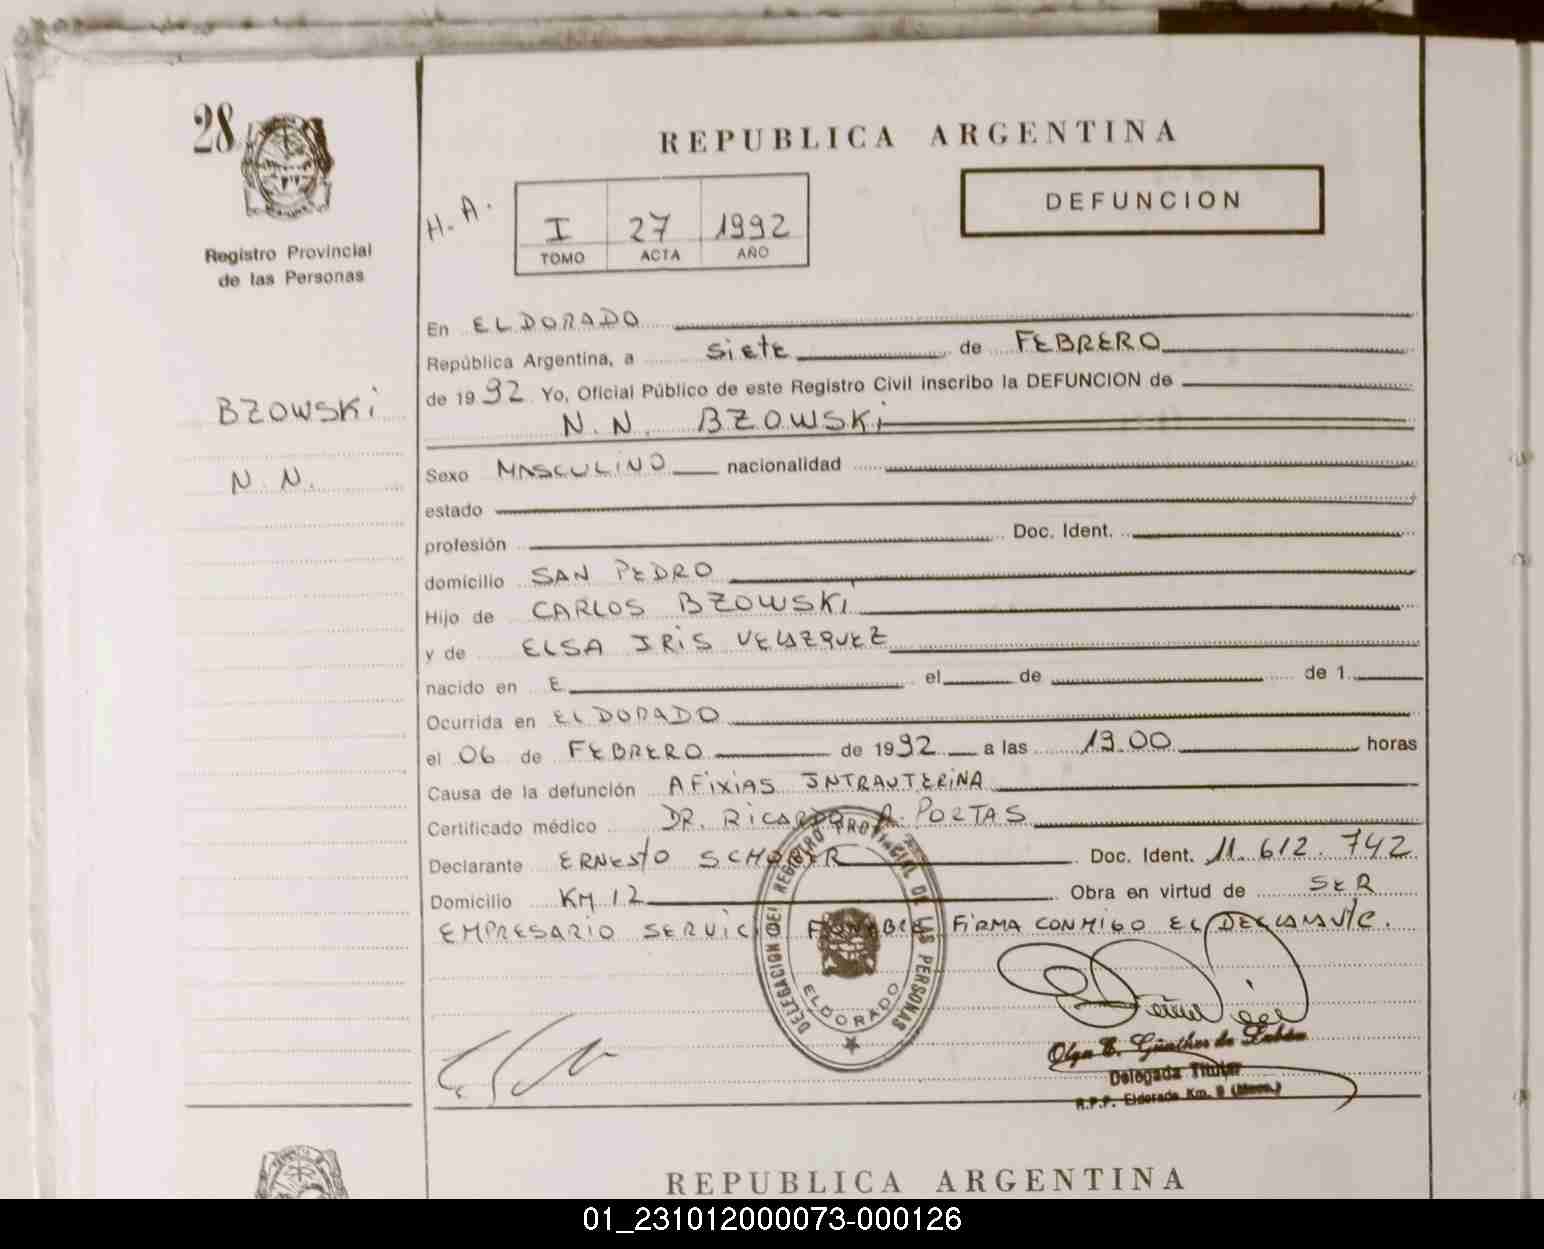 28
Registro Provincial
de las Personas
BZOWSKi
N. N.
REPUBLICA ARGENTINA
H. A.
I 27 1992
TOMO ACTA AÑO
DEFUNCION
En ELDORADO
República Argentina, a siete de FEBRERO
de 1992 Yo, Oficial Público de este Registro Civil inscribo la DEFUNCION de
N. N. BZOWSKi
Sexo MASCULINO nacionalidad
estado
profesión Doc. Ident.
domicilio SAN PEDRO
Hijo de CARLOS BZOWSKi
y de ELSA IRIS VELAZQUEZ
nacido en E el de de 1
Ocurrida en ELDORADO
el 06 de FEBRERO de 1992 a las 19.00 horas
Causa de la defunción AFiXiAS INTRAUTERINA
Certificado médico DR. RICARDO A. PORTAS
Declarante ERNESTO SCHOBER Doc. Ident. 11.612.742
Domicilio KM 12 Obra en virtud de SER
EMPRESARIO SERVICIO FUNEBRE FIRMA CONMIGO EL DECLARANTE.
DELEGACION DEL REGISTRO PROVINCIAL DE LAS PERSONAS
ELDORADO
Olga E. Günther de
Delegada Titular
R.P.P. Eldorado Km. 9 (Mnes.)
REPUBLICA ARGENTINA
01_231012000073-000126